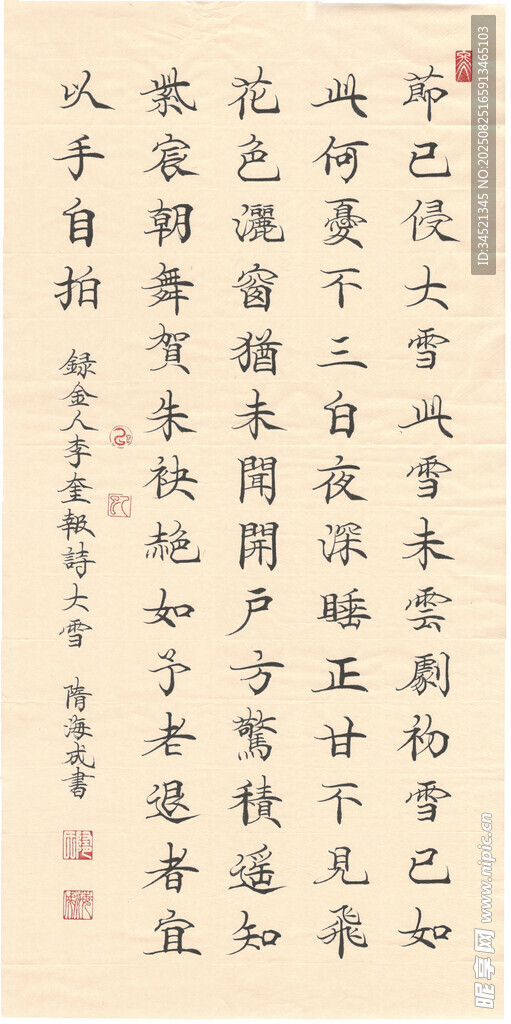 節已侵大雪此雪未雲劇初雪已如
此何憂不三白夜深睡正甘不見飛
花色灑窗猶未聞開戶方驚積遥知
紫宸朝舞賀朱袂赩如予老退者宜
以手自拍
録金人李奎報詩大雪 隋海成書
ID:34521345 NO:20250825165913465103
昵享网 www.nipic.cn